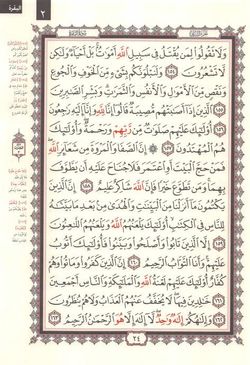 البقرة
٢
وَلَا تَقُولُوا۟ لِمَن يُقْتَلُ فِى سَبِيلِ ٱللَّهِ أَمْوَٰتٌۢ بَلْ أَحْيَآءٌ وَلَٰكِن
لَّا تَشْعُرُونَ ١٥٤ وَلَنَبْلُوَنَّكُم بِشَىْءٍ مِّنَ ٱلْخَوْفِ وَٱلْجُوعِ
وَنَقْصٍ مِّنَ ٱلْأَمْوَٰلِ وَٱلْأَنفُسِ وَٱلثَّمَرَٰتِ وَبَشِّرِ ٱلصَّٰبِرِينَ
١٥٥ ٱلَّذِينَ إِذَآ أَصَٰبَتْهُم مُّصِيبَةٌ قَالُوٓا۟ إِنَّا لِلَّهِ وَإِنَّآ إِلَيْهِ رَٰجِعُونَ
١٥٦ أُو۟لَٰٓئِكَ عَلَيْهِمْ صَلَوَٰتٌ مِّن رَّبِّهِمْ وَرَحْمَةٌ وَأُو۟لَٰٓئِكَ
هُمُ ٱلْمُهْتَدُونَ ١٥٧ ۞ إِنَّ ٱلصَّفَا وَٱلْمَرْوَةَ مِن شَعَآئِرِ ٱللَّهِ
فَمَنْ حَجَّ ٱلْبَيْتَ أَوِ ٱعْتَمَرَ فَلَا جُنَاحَ عَلَيْهِ أَن يَطَّوَّفَ
بِهِمَا وَمَن تَطَوَّعَ خَيْرًا فَإِنَّ ٱللَّهَ شَاكِرٌ عَلِيمٌ ١٥٨ إِنَّ ٱلَّذِينَ
يَكْتُمُونَ مَآ أَنزَلْنَا مِنَ ٱلْبَيِّنَٰتِ وَٱلْهُدَىٰ مِنۢ بَعْدِ مَا بَيَّنَّٰهُ
لِلنَّاسِ فِى ٱلْكِتَٰبِ أُو۟لَٰٓئِكَ يَلْعَنُهُمُ ٱللَّهُ وَيَلْعَنُهُمُ ٱللَّٰعِنُونَ
١٥٩ إِلَّا ٱلَّذِينَ تَابُوا۟ وَأَصْلَحُوا۟ وَبَيَّنُوا۟ فَأُو۟لَٰٓئِكَ أَتُوبُ
عَلَيْهِمْ وَأَنَا ٱلتَّوَّابُ ٱلرَّحِيمُ ١٦٠ إِنَّ ٱلَّذِينَ كَفَرُوا۟ وَمَاتُوا۟ وَهُمْ
كُفَّارٌ أُو۟لَٰٓئِكَ عَلَيْهِمْ لَعْنَةُ ٱللَّهِ وَٱلْمَلَٰٓئِكَةِ وَٱلنَّاسِ أَجْمَعِينَ
١٦١ خَٰلِدِينَ فِيهَا لَا يُخَفَّفُ عَنْهُمُ ٱلْعَذَابُ وَلَا هُمْ يُنظَرُونَ
١٦٢ وَإِلَٰهُكُمْ إِلَٰهٌ وَٰحِدٌ لَّآ إِلَٰهَ إِلَّا هُوَ ٱلرَّحْمَٰنُ ٱلرَّحِيمُ ١٦٣
٢٤